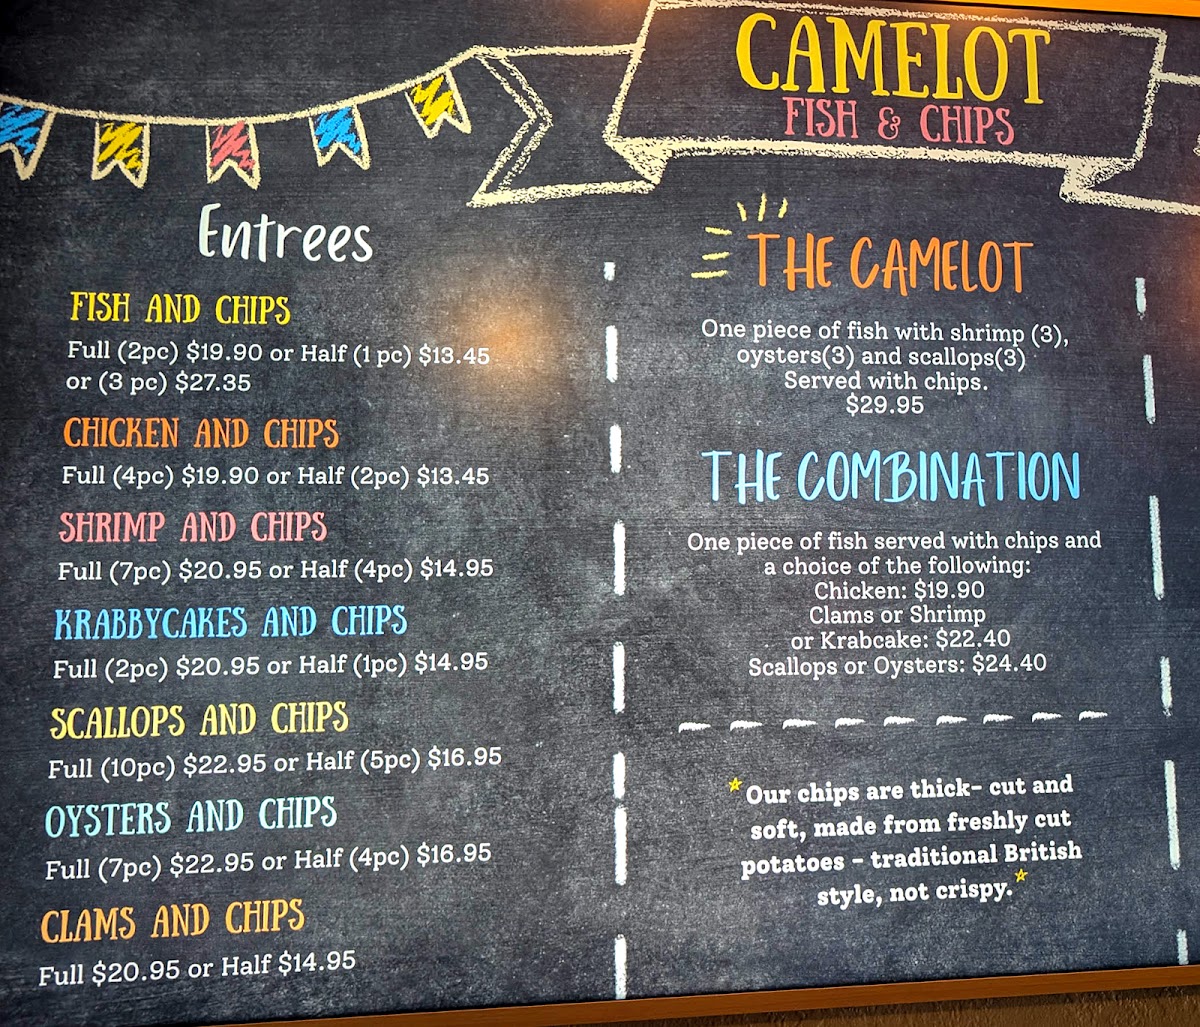 CAMELOT
FISH & CHIPS
Entrees
FISH AND CHIPS
Full (2pc) $19.90 or Half (1 pc) $13.45
or (3 pc) $27.35
CHICKEN AND CHIPS
Full (4pc) $19.90 or Half (2pc) $13.45
SHRIMP AND CHIPS
Full (7pc) $20.95 or Half (4pc) $14.95
KRABBYCAKES AND CHIPS
Full (2pc) $20.95 or Half (1pc) $14.95
SCALLOPS AND CHIPS
Full (10pc) $22.95 or Half (5pc) $16.95
OYSTERS AND CHIPS
Full (7pc) $22.95 or Half (4pc) $16.95
CLAMS AND CHIPS
Full $20.95 or Half $14.95
THE CAMELOT
One piece of fish with shrimp (3),
oysters(3) and scallops(3)
Served with chips.
$29.95
THE COMBINATION
One piece of fish served with chips and
a choice of the following:
Chicken: $19.90
Clams or Shrimp
or Krabcake: $22.40
Scallops or Oysters: $24.40
Our chips are thick- cut and
soft, made from freshly cut
potatoes - traditional British
style, not crispy.